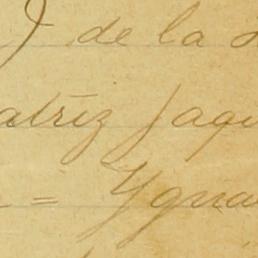 de la
atríz Jaqu
= Ygna